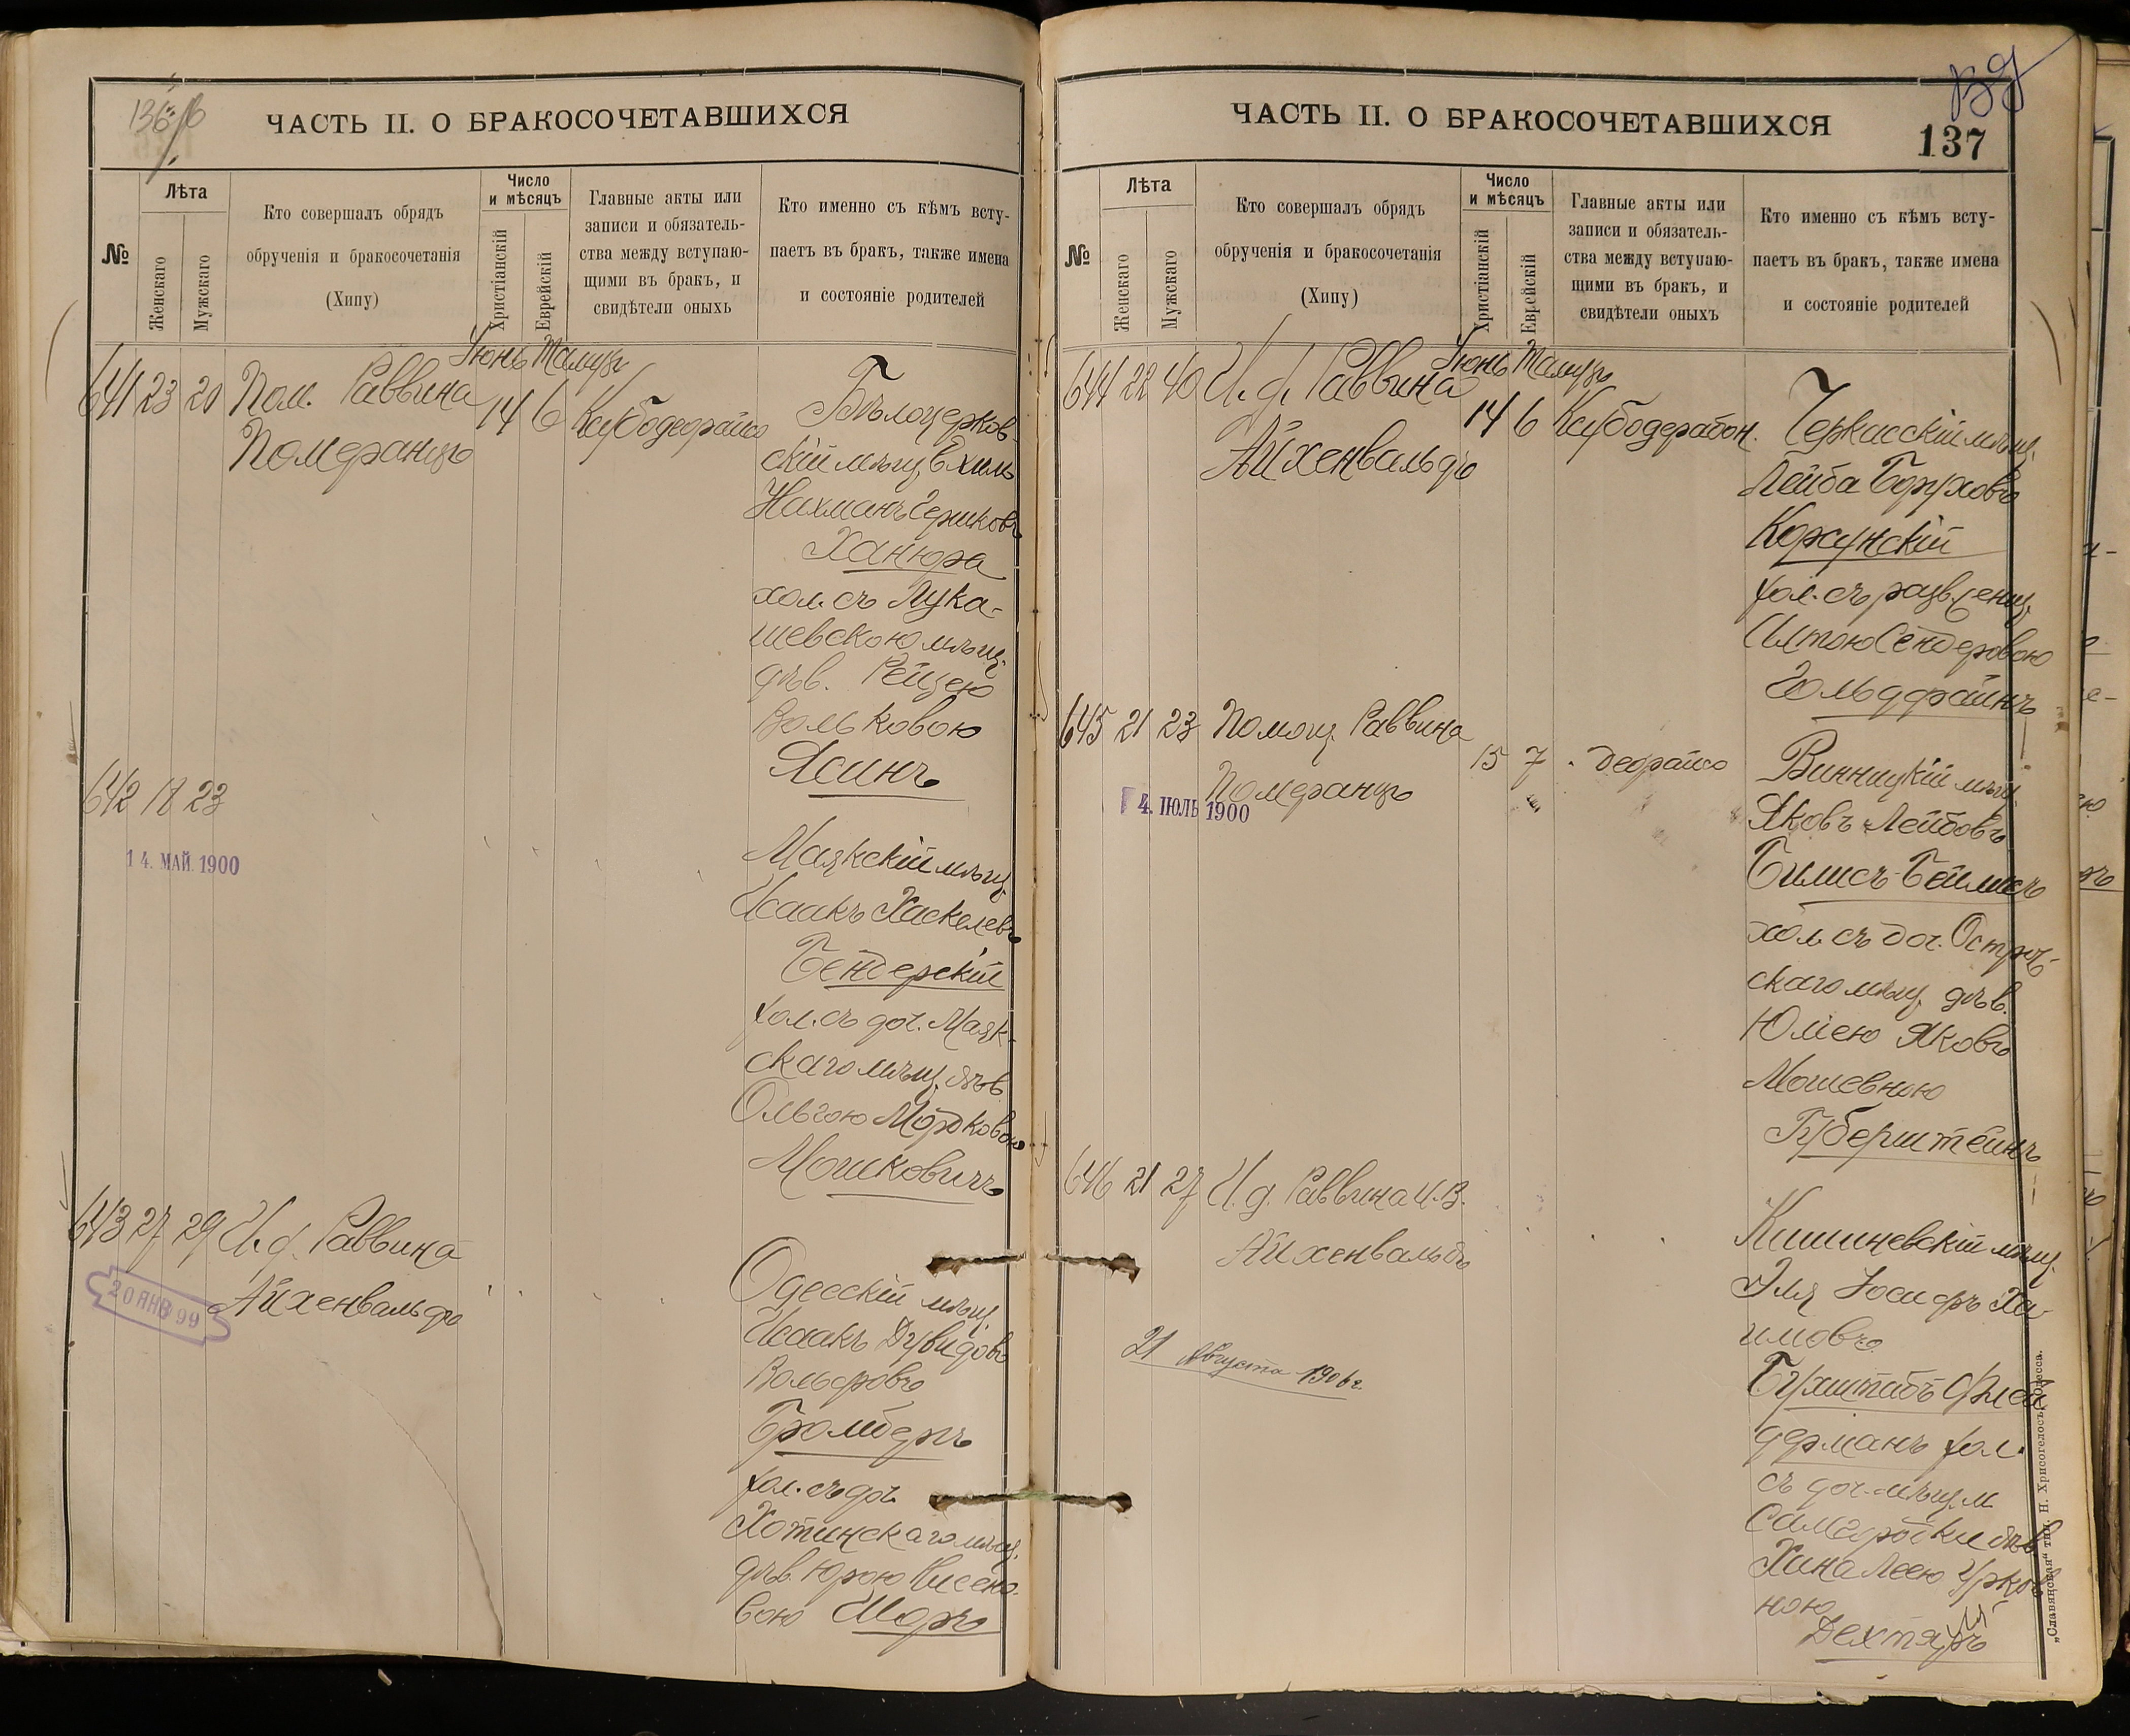 136 об
ЧАСТЬ II. О БРАКОСОЧЕТАВШИХСЯ
№
Лѣта
Женскаго
Мужскаго
Кто совершалъ обрядъ
обрученія и бракосочетанія
(Хипу)
Число
и мѣсяцъ
Христіанскій
Еврейскій
Главные акты или
записи и обязатель-
ства между вступаю-
щими въ бракъ, и
свидѣтели оныхъ
Кто именно съ кѣмъ всту-
паетъ въ бракъ, также имена
и состояніе родителей
Іюнь Тамузъ
641 23 20 Пом. Раввина
Померанцъ
14 6
Бѣлоцерков-
скій мѣщ. Ехиль
Нахманъ Гершковъ
Ханюра
хол. съ Лука-
шевскою мѣщ.
дѣв. Рейзею
Вольковою
Ясинъ
642 18 23
14. МАЙ. 1900
Маякскій мѣщ.
Исаакъ Хаскелевъ
Бендерскій
хол. съ доч. Маяк-
скаго мѣщ. дѣв.
Ольгою Мордковою
Мошковичъ
643 27 29 И. д. Раввина
Айхенвальдъ
20 ЯНВ 99
Одесскій мѣщ.
Исаакъ Дувидовъ
Вольфовъ
Бромбергъ
хол. съ доч.
Хотинскаго мѣщ.
дѣв.
вою Шоръ
137
ЧАСТЬ II. О БРАКОСОЧЕТАВШИХСЯ
№
Лѣта
Женскаго
Мужскаго
Кто совершалъ обрядъ
обрученія и бракосочетанія
(Хипу)
Число
и мѣсяцъ
Христіанскій
Еврейскій
Главные акты или
записи и обязатель-
ства между вступаю-
щими въ бракъ, и
свидѣтели оныхъ
Кто именно съ кѣмъ всту-
паетъ въ бракъ, также имена
и состояніе родителей
Іюнь Тамузъ
644 22 40 И. д. Раввина
Айхенвальдъ
14 6
Черкасскій мѣщ.
Лейба Боруховъ
Корсунскій
хол. съ
Сендеровою
Гольдфайнъ
645 21 23 Помощ. Раввина
Померанцъ
15 7
4. ІЮЛЬ 1900
Винницкій мѣщ.
Яковъ Лейбовъ
Билисъ-Бейлисъ
хол. съ доч. Остро-
скаго мѣщ. дѣв.
Юліею Яковъ
Мошевною
Губерштейнъ
646 21 27 И. д. Раввина И. В.
Айхенвальдъ
21 Августа 1906 г.
Кишиневскій мѣщ.
Эля Іосифъ Ха-
имовъ
Бухштабъ
дерманъ хол.
съ доч. мѣщ. м.
Самгородки дѣв.
Хина Леею
ною
Дехтярь
„Славянская“ тип. Н. Хрисогелосъ, Одесса.